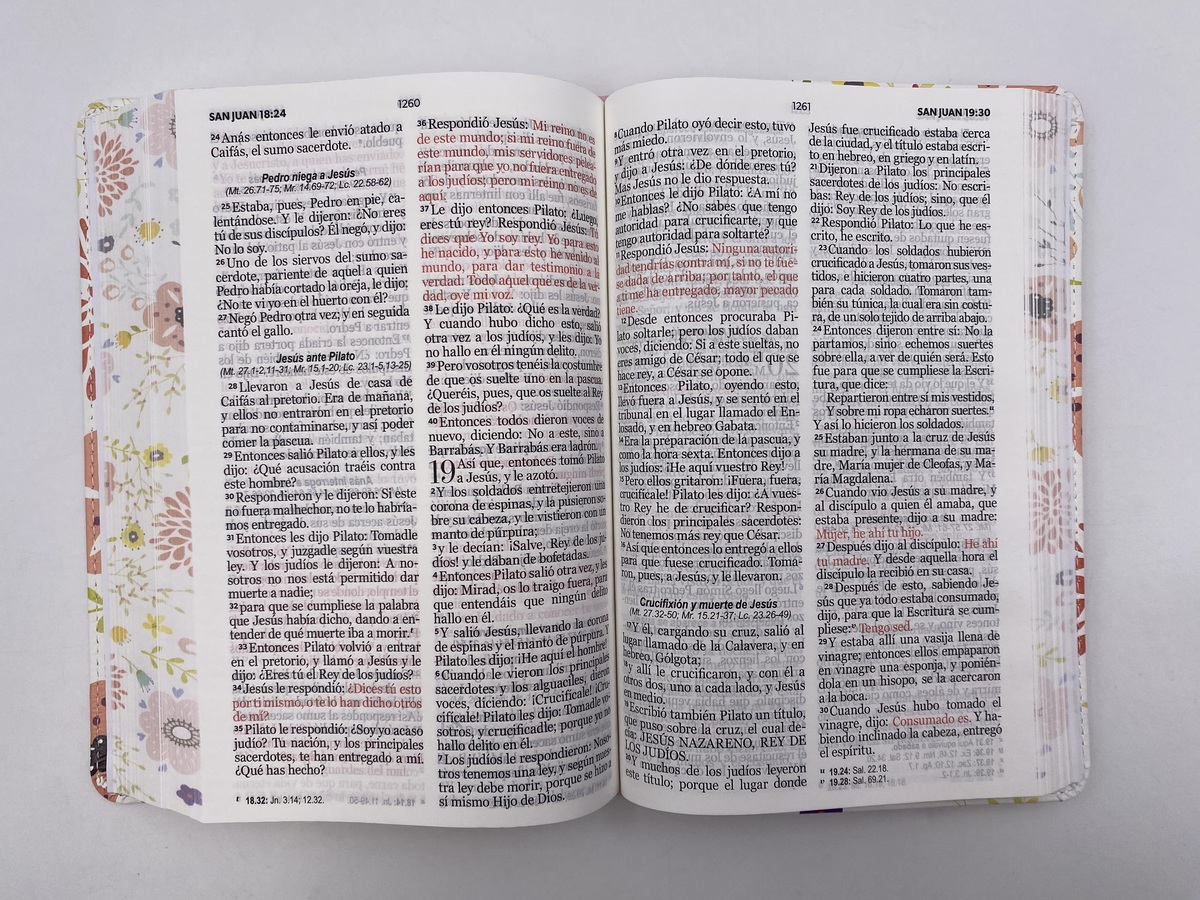 SAN JUAN 18:24
1260
24 Anás entonces le envió atado a
Caifás, el sumo sacerdote.
Pedro niega a Jesús
(Mt. 26.71-75; Mr. 14.69-72; Lc. 22.58-62)
25 Estaba, pues, Pedro en pie, ca-
lentándose. Y le dijeron: ¿No eres
tú de sus discípulos? Él negó, y dijo:
No lo soy.
26 Uno de los siervos del sumo sa-
cerdote, pariente de aquel a quien
Pedro había cortado la oreja, le dijo:
¿No te vi yo en el huerto con él?
27 Negó Pedro otra vez; y en seguida
cantó el gallo.
Jesús ante Pilato
(Mt. 27.1-2,11-31; Mr. 15.1-20; Lc. 23.1-5,13-25)
28 Llevaron a Jesús de casa de
Caifás al pretorio. Era de mañana,
y ellos no entraron en el pretorio
para no contaminarse, y así poder
comer la pascua.
29 Entonces salió Pilato a ellos, y les
dijo: ¿Qué acusación traéis contra
este hombre?
30 Respondieron y le dijeron: Si éste
no fuera malhechor, no te lo habría-
mos entregado.
31 Entonces les dijo Pilato: Tomadle
vosotros, y juzgadle según vuestra
ley. Y los judíos le dijeron: A no-
sotros no nos está permitido dar
muerte a nadie;
32 para que se cumpliese la palabra
que Jesús había dicho, dando a en-
tender de qué muerte iba a morir.
33 Entonces Pilato volvió a entrar
en el pretorio, y llamó a Jesús y le
dijo: ¿Eres tú el Rey de los judíos?
34 Jesús le respondió: ¿Dices tú esto
por ti mismo, o te lo han dicho otros
de mí?
35 Pilato le respondió: ¿Soy yo acaso
judío? Tu nación, y los principales
sacerdotes, te han entregado a mí.
¿Qué has hecho?
18.32: Jn. 3.14; 12.32.
36 Respondió Jesús: Mi reino no es
de este mundo; si mi reino fuera de
este mundo, mis servidores pelea-
rían para que yo no fuera entregado
a los judíos; pero mi reino no es de
aquí.
37 Le dijo entonces Pilato: ¿Luego,
eres tú rey? Respondió Jesús: Tú
dices que Yo soy rey. Yo para esto
he nacido, y para esto he venido al
mundo, para dar testimonio a la
verdad. Todo aquel que es de la ver-
dad, oye mi voz.
38 Le dijo Pilato: ¿Qué es la verdad?
Y cuando hubo dicho esto, salió
otra vez a los judíos, y les dijo: Yo
no hallo en él ningún delito.
39 Pero vosotros tenéis la costumbre
de que os suelte uno en la pascua.
¿Queréis, pues, que os suelte al Rey
de los judíos?
40 Entonces todos dieron voces de
nuevo, diciendo: No a este, sino a
Barrabás. Y Barrabás era ladrón.
19 Así que, entonces tomó Pilato
a Jesús, y le azotó.
2 Y los soldados entretejieron una
corona de espinas, y la pusieron so-
bre su cabeza, y le vistieron con un
manto de púrpura;
3 y le decían: ¡Salve, Rey de los ju-
díos! y le daban de bofetadas.
4 Entonces Pilato salió otra vez, y les
dijo: Mirad, os lo traigo fuera, para
que entendáis que ningún delito
hallo en él.
5 Y salió Jesús, llevando la corona
de espinas y el manto de púrpura. Y
Pilato les dijo: ¡He aquí el hombre!
6 Cuando le vieron los principales
sacerdotes y los alguaciles, dieron
voces, diciendo: ¡Crucifícale! ¡Cru-
cifícale! Pilato les dijo: Tomadle vo-
sotros, y crucificadle; porque yo no
hallo delito en él.
7 Los judíos le respondieron: Noso-
tros tenemos una ley, y según nues-
tra ley debe morir, porque se hizo a
sí mismo Hijo de Dios.
1261
SAN JUAN 19:30
8 Cuando Pilato oyó decir esto, tuvo
más miedo.
9 Y entró otra vez en el pretorio,
y dijo a Jesús: ¿De dónde eres tú?
Mas Jesús no le dio respuesta.
Entonces le dijo Pilato: ¿A mí no
me hablas? ¿No sabes que tengo
autoridad para crucificarte, y que
tengo autoridad para soltarte?
Respondió Jesús: Ninguna autori-
dad tendrías contra mí, si no te fue-
se dada de arriba; por tanto, el que
a ti me ha entregado, mayor pecado
tiene.
12 Desde entonces procuraba Pi-
lato soltarle; pero los judíos daban
voces, diciendo: Si a este sueltas, no
eres amigo de César; todo el que se
hace rey, a César se opone.
13 Entonces Pilato, oyendo esto,
llevó fuera a Jesús, y se sentó en el
tribunal en el lugar llamado el En-
losado, y en hebreo Gabata.
14 Era la preparación de la pascua, y
como la hora sexta. Entonces dijo a
los judíos: ¡He aquí vuestro Rey!
15 Pero ellos gritaron: ¡Fuera, fuera,
crucifícale! Pilato les dijo: ¿A vues-
tro Rey he de crucificar? Respon-
dieron los principales sacerdotes:
No tenemos más rey que César.
16 Así que entonces lo entregó a ellos
para que fuese crucificado. Toma-
ron, pues, a Jesús, y le llevaron.
Crucifixión y muerte de Jesús
(Mt. 27.32-50; Mr. 15.21-37; Lc. 23.26-49)
17 Y él, cargando su cruz, salió al
lugar llamado de la Calavera, y en
hebreo, Gólgota;
18 y allí le crucificaron, y con él a
otros dos, uno a cada lado, y Jesús
en medio.
19 Escribió también Pilato un título,
que puso sobre la cruz, el cual de-
cía: JESÚS NAZARENO, REY DE
LOS JUDÍOS.
20 Y muchos de los judíos leyeron
este título; porque el lugar donde
Jesús fue crucificado estaba cerca
de la ciudad, y el título estaba escri-
to en hebreo, en griego y en latín.
21 Dijeron a Pilato los principales
sacerdotes de los judíos: No escri-
bas: Rey de los judíos; sino, que él
dijo: Soy Rey de los judíos.
22 Respondió Pilato: Lo que he es-
crito, he escrito.
23 Cuando los soldados hubieron
crucificado a Jesús, tomaron sus ves-
tidos, e hicieron cuatro partes, una
para cada soldado. Tomaron tam-
bién su túnica, la cual era sin costu-
ra, de un solo tejido de arriba abajo.
24 Entonces dijeron entre sí: No la
partamos, sino echemos suertes
sobre ella, a ver de quién será. Esto
fue para que se cumpliese la Escri-
tura, que dice:
Repartieron entre sí mis vestidos,
Y sobre mi ropa echaron suertes.
Y así lo hicieron los soldados.
25 Estaban junto a la cruz de Jesús
su madre, y la hermana de su ma-
dre, María mujer de Cleofas, y Ma-
ría Magdalena.
26 Cuando vio Jesús a su madre, y
al discípulo a quien él amaba, que
estaba presente, dijo a su madre:
Mujer, he ahí tu hijo.
27 Después dijo al discípulo: He ahí
tu madre. Y desde aquella hora el
discípulo la recibió en su casa.
28 Después de esto, sabiendo Je-
sús que ya todo estaba consumado,
dijo, para que la Escritura se cum-
pliese: Tengo sed.
29 Y estaba allí una vasija llena de
vinagre; entonces ellos empaparon
en vinagre una esponja, y ponién-
dola en un hisopo, se la acercaron
a la boca.
30 Cuando Jesús hubo tomado el
vinagre, dijo: Consumado es. Y ha-
biendo inclinado la cabeza, entregó
el espíritu.
19.24: Sal. 22.18.
19.28: Sal. 69.21.